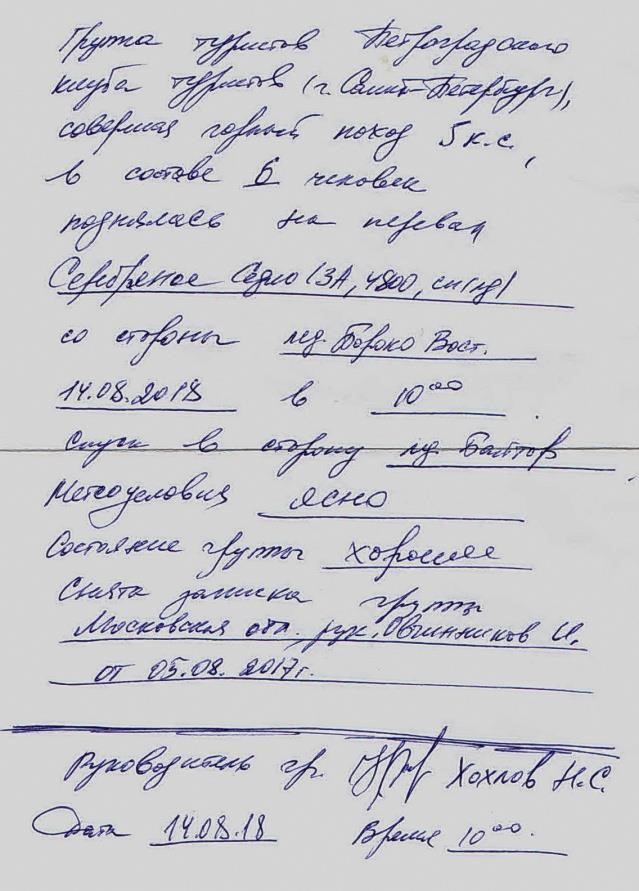 Группа туристов Петроградского
клуба туристов (г. Санкт-Петербург),
совершая горный поход 5 к.с.,
в составе 6 человек
поднялась на перевал
Серебряное Седло (3А, 4800, сн/лд)
со стороны лед. Бороко Вост.
14.08.2018 в 10⁰⁰.
Спуск в сторону лед. Байтор,
Метеоусловия ясно
Состояние группы хорошее
Снята записка группы
Московская обл., рук. Овчинников И.
от 05.08.2017г.
Руководитель гр. Хохлов Н.С.
Дата 14.08.18 Время 10⁰⁰.